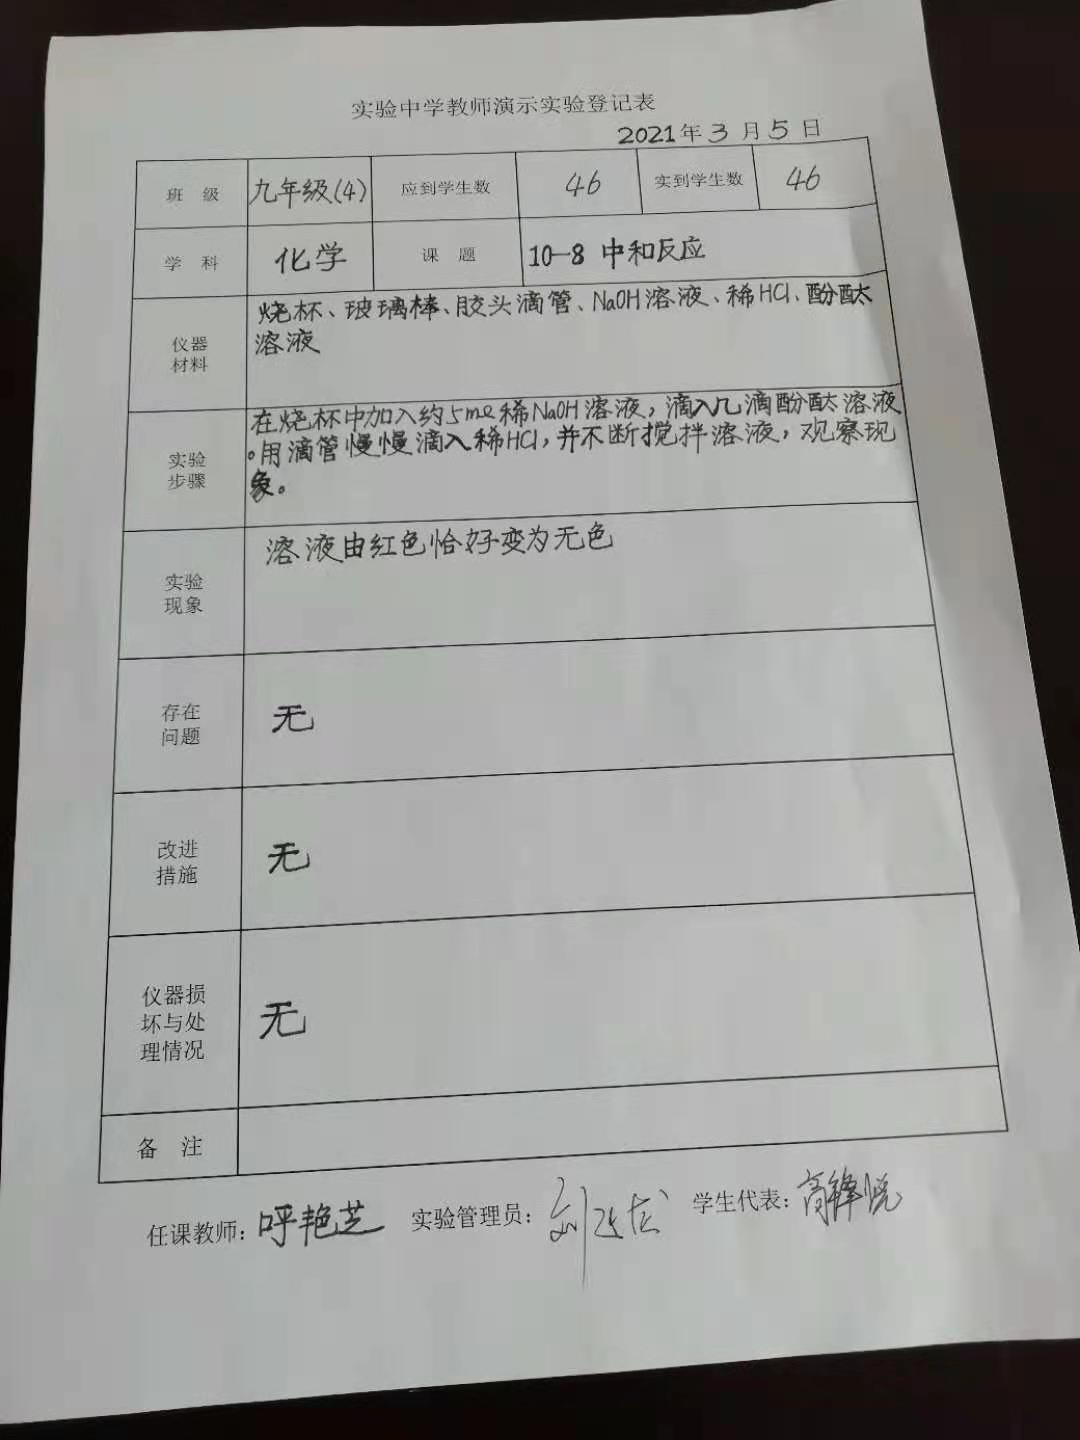 实验中学教师演示实验登记表
2021年3月5日
班 级 九年级(4) 应到学生数 46 实到学生数 46
学 科 化学 课 题 10-8 中和反应
仪器
材料
烧杯、玻璃棒、胶头滴管、NaOH溶液、稀HCl、酚酞
溶液
实验
步骤
在烧杯中加入约5ml稀NaOH溶液，滴入几滴酚酞溶液
。用滴管慢慢滴入稀HCl，并不断搅拌溶液，观察现
象。
实验
现象
溶液由红色恰好变为无色
存在
问题
无
改进
措施
无
仪器损
坏与处
理情况
无
备 注
任课教师：呼艳芝 实验管理员： 学生代表：